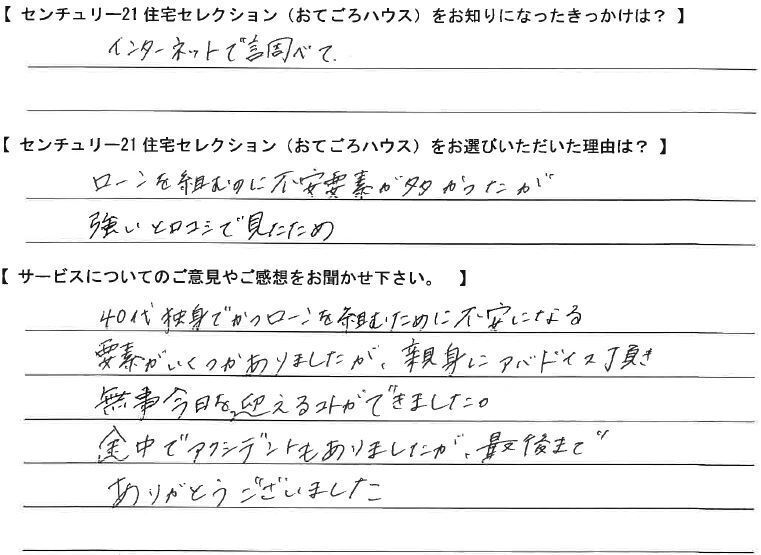 【 センチュリー21 住宅セレクション（おてごろハウス）をお知りになったきっかけは？ 】
インターネットで調べて.
【 センチュリー21 住宅セレクション（おてごろハウス）をお選びいただいた理由は？ 】
ローンを組むのに不安要素が多かったが
強いと口コミで見たため
【 サービスについてのご意見やご感想をお聞かせ下さい。 】
40代独身でかつローンを組むために不安になる
要素がいくつかありましたが、親身にアバドイス頂き
無事今日を迎えるコトができました。
中でアクシデントもありましたが、最後まで
ありがとうございました